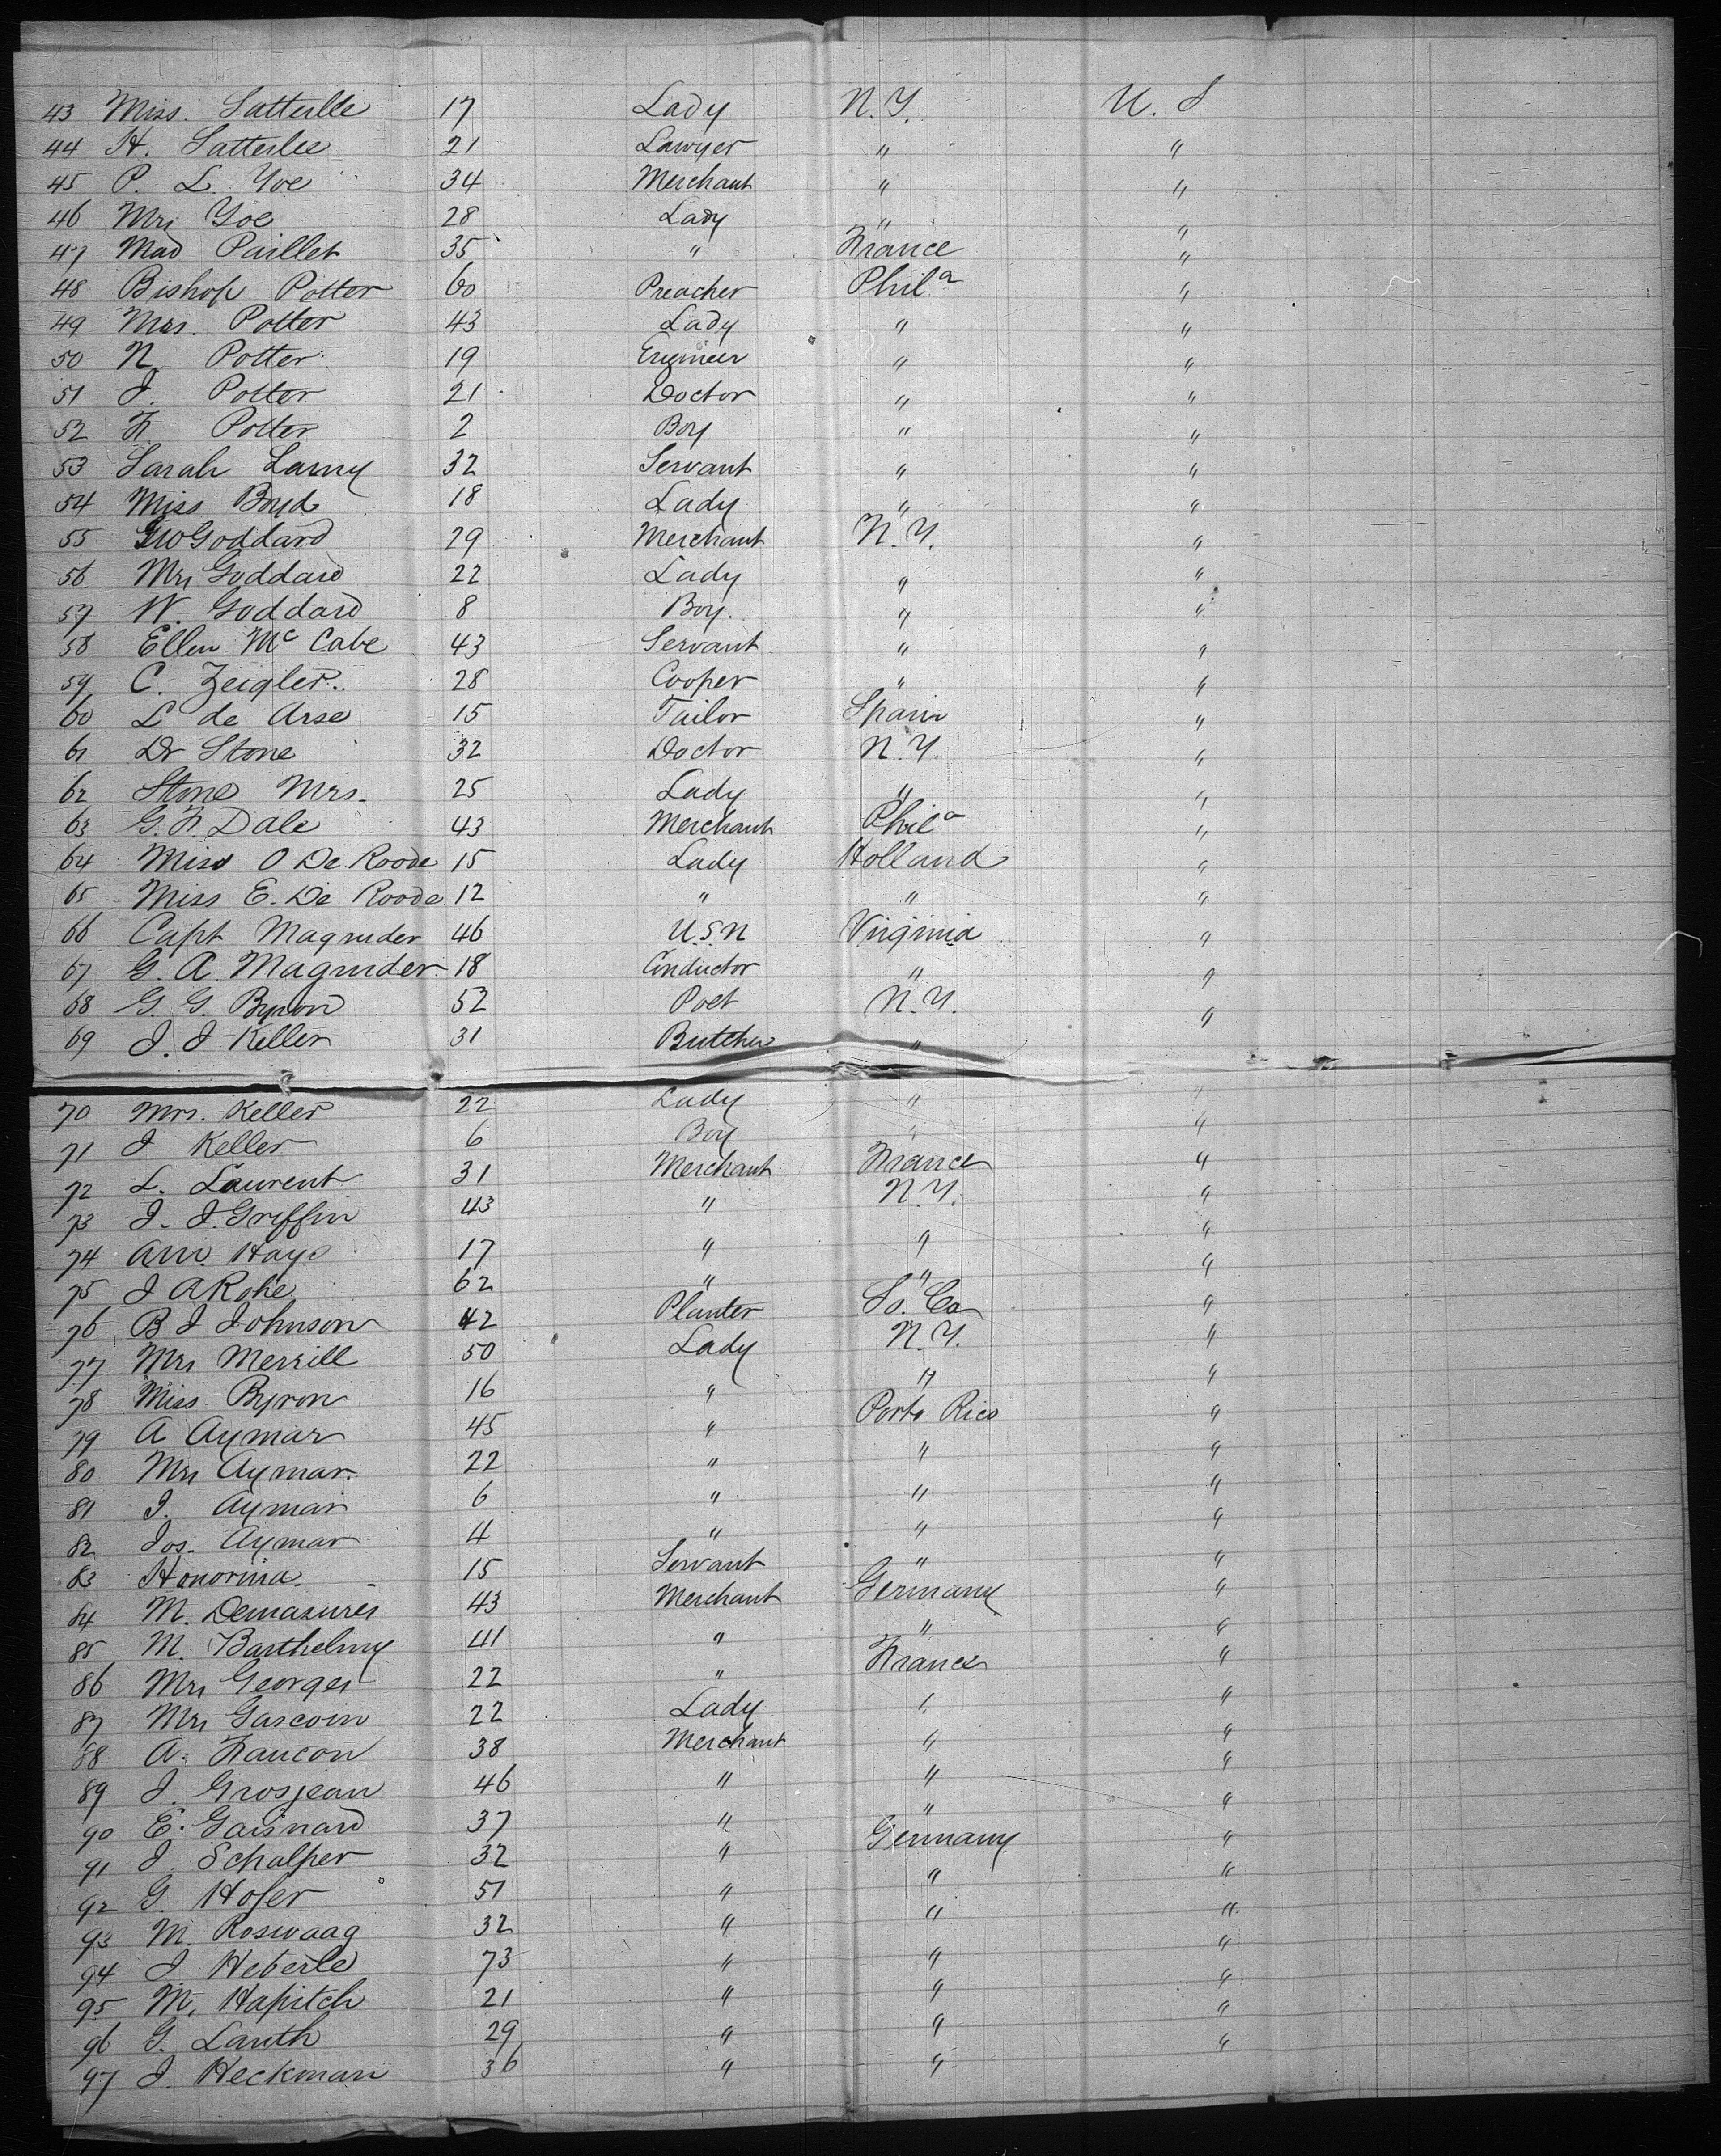 43 Miss. Satterlee 17 Lady N.Y. U. S
44 H. Satterlee 21 Lawyer " "
45 P. L. Yoe 34 Merchant " "
46 Mrs Yoe 28 Lady " "
47 Mad Paillet 35 " France "
48 Bishop Potter 60 Preacher Phila "
49 Mrs. Potter 43 Lady " "
50 N. Potter 19 Engineer " "
51 J. Potter 21 Doctor " "
52 F. Potter 2 Boy " "
53 Sarah Larny 32 Servant " "
54 Miss Boyd 18 Lady " "
55 GW Goddard 29 Merchant N.Y. "
56 Mrs Goddard 22 Lady " "
57 W. Goddard 8 Boy. " "
58 Ellen McCabe 43 Servant " "
59 C. Zeigler. 28 Cooper " "
60 L de Arse 15 Tailor Spain "
61 Dr Stone 32 Doctor N.Y. "
62 Stone Mrs. 25 Lady " "
63 G.F. Dale 43 Merchant Phila "
64 Miss O De Roode 15 Lady Holland "
65 Miss E. De Roode 12 " " "
66 Capt Magruder 46 U.S.N Virginia "
67 G. A. Magruder 18 Conductor " "
68 G. G. Byron 52 Poet N.Y. "
69 J. J Keller 31 Butcher " "
70 Mrs. Keller 22 Lady " "
71 J Keller 6 Boy " "
72 L. Laurent 31 Merchant France "
73 J. J. Griffin 43 " N.Y. "
74 Hays 17 " " "
75 J A Rohe 62 " " "
76 B J Johnson 42 Planter So. Ca "
77 Mrs Merrill 50 Lady N.Y. "
78 Miss Byron 16 " " "
79 A Aymar 45 " Porto Rico "
80 Mrs Aymar. 22 " " "
81 J. Aymar 6 " " "
82 Jos. Aymar 4 " " "
83 Honorina. 15 Servant " "
84 M. Demazures 43 Merchant Germany "
85 M. Barthelmy 41 " " "
86 Mrs Georges 22 " France "
87 Mrs Gascoin 22 Lady " "
88 A. Faucon 38 Merchant " "
89 J. Grosjean 46 " " "
90 E. Gaisnard 37 " " "
91 J. Schalper 32 " Germany "
92 G. Hofer 51 " " "
93 M. Roswaag 32 " " "
94 J Heberle 73 " " "
95 M. Hapitch 21 " " "
96 G. Lauth 29 " " "
97 J. Heckman 36 " "